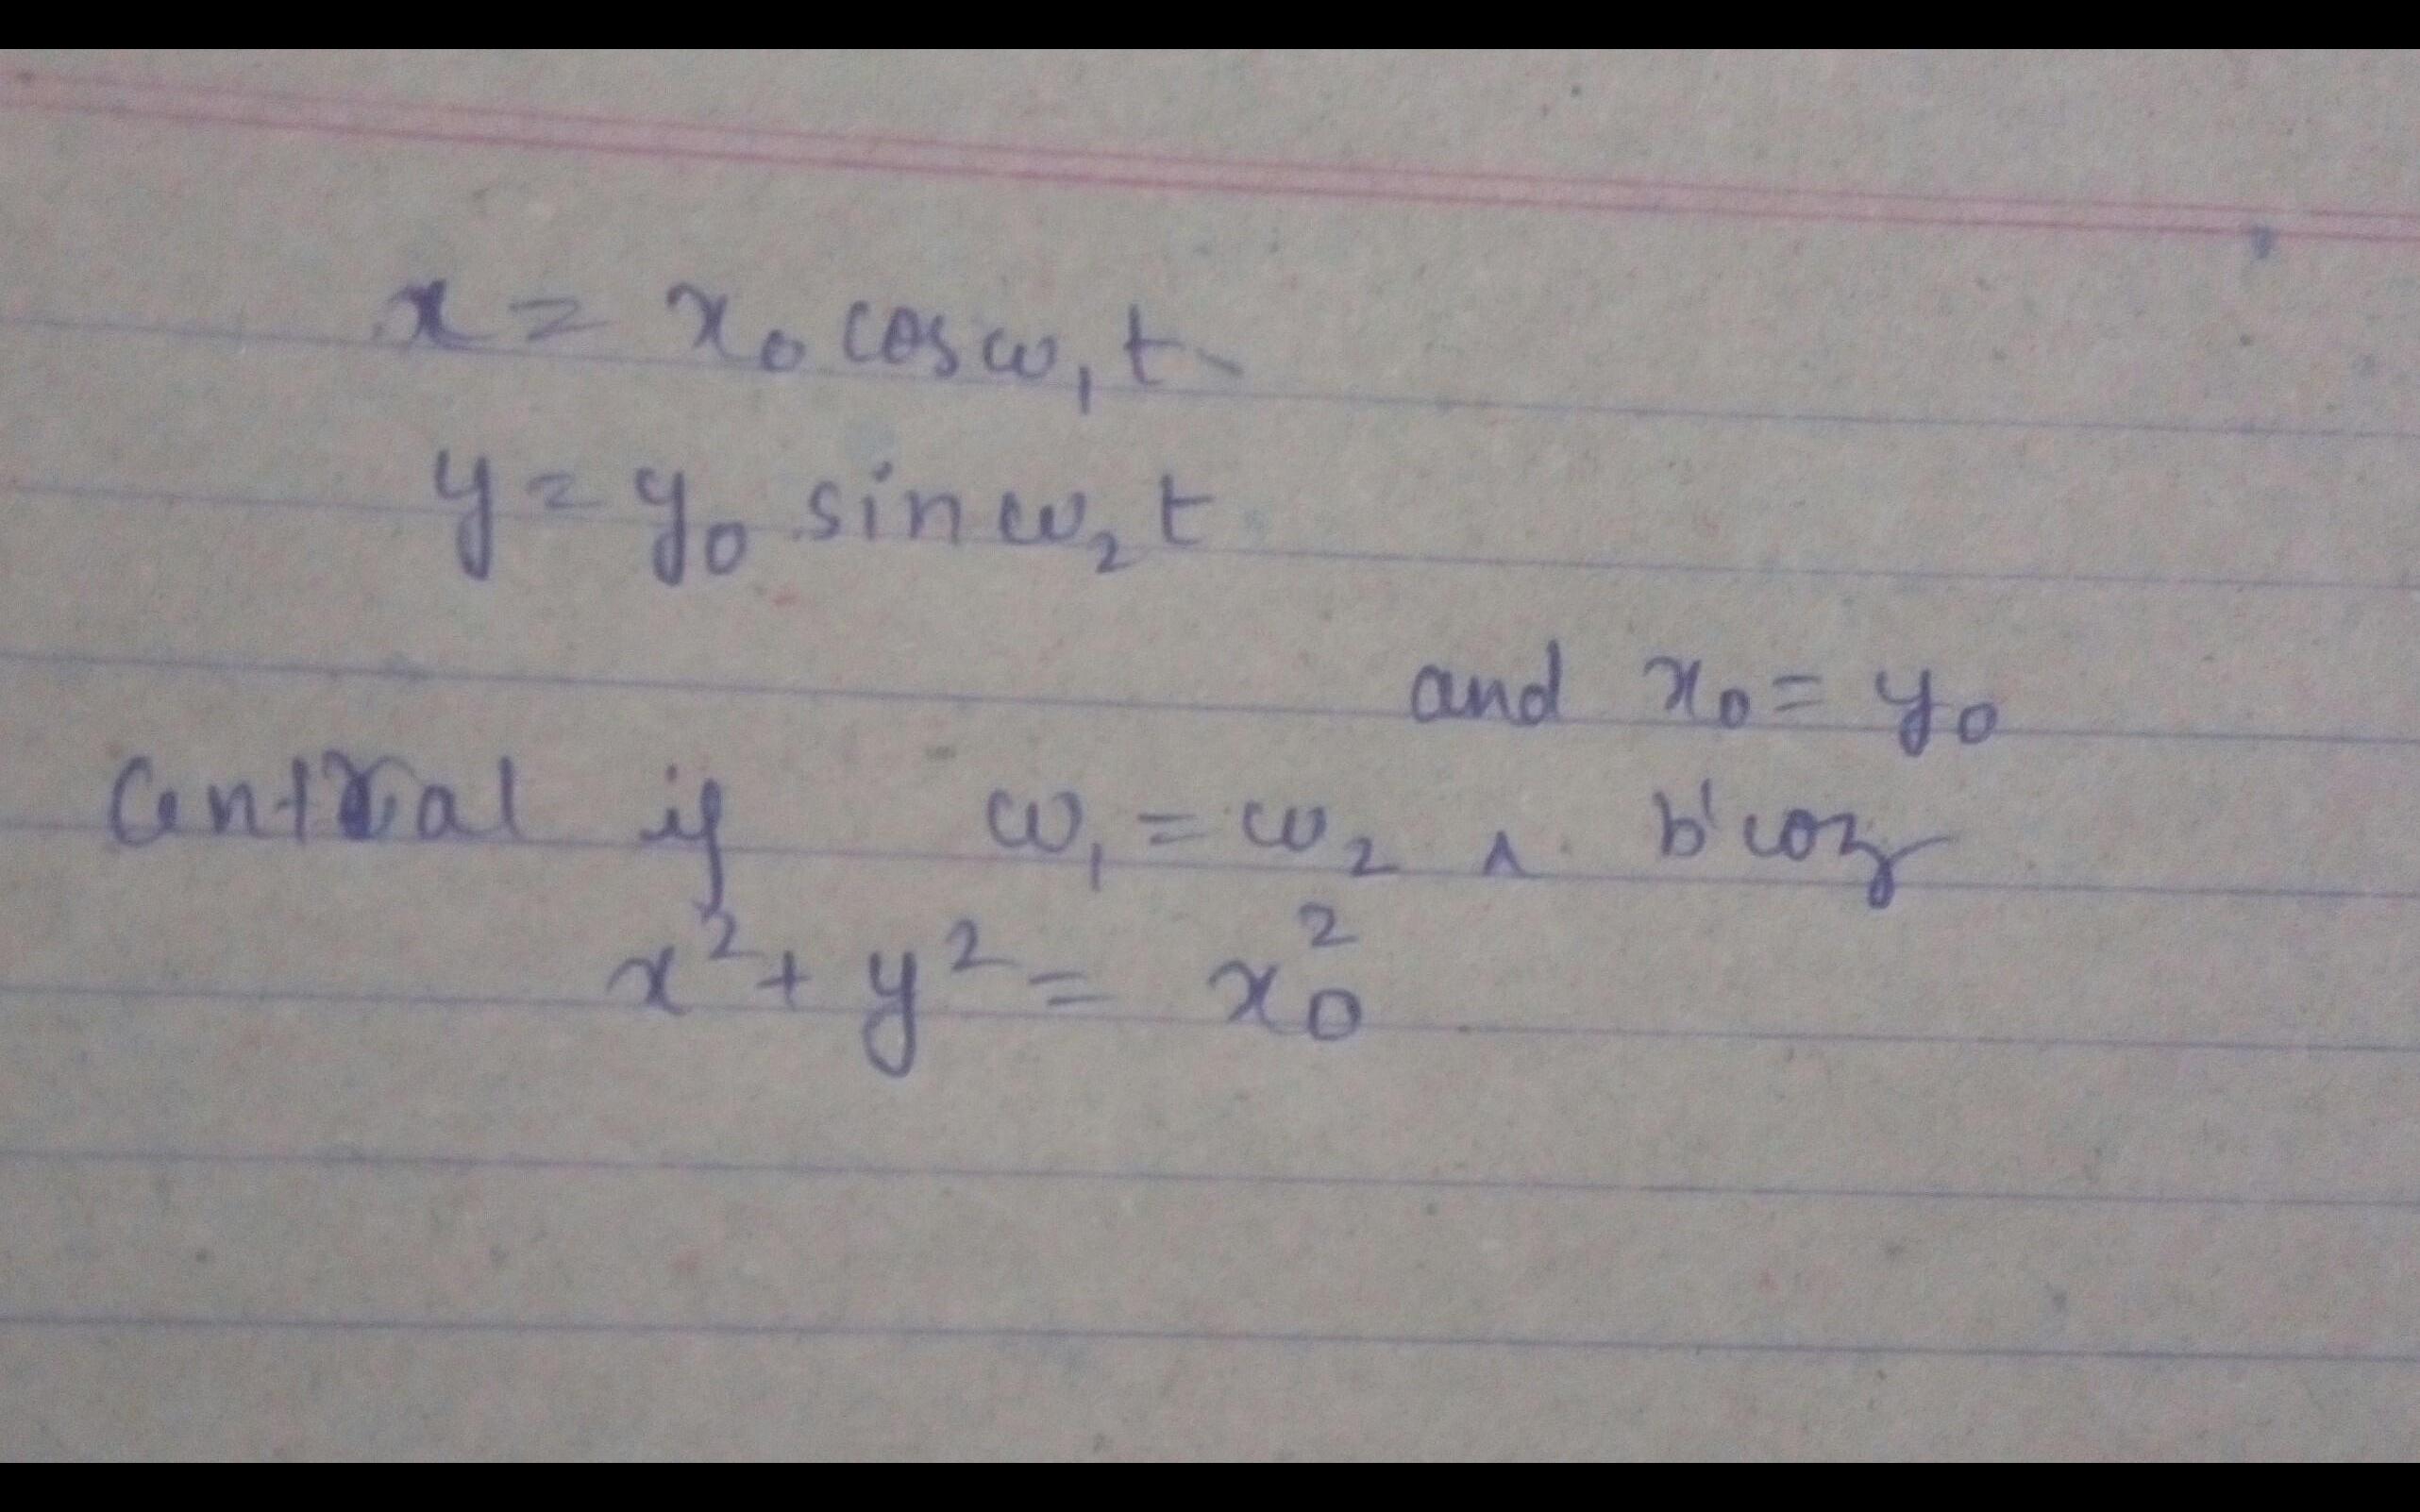 x = x₀ cos ω₁ t
y = y₀ sin ω₂ t
and x₀ = y₀
Central if ω₁ = ω₂ ∧ b'coz
x² + y² = x₀²